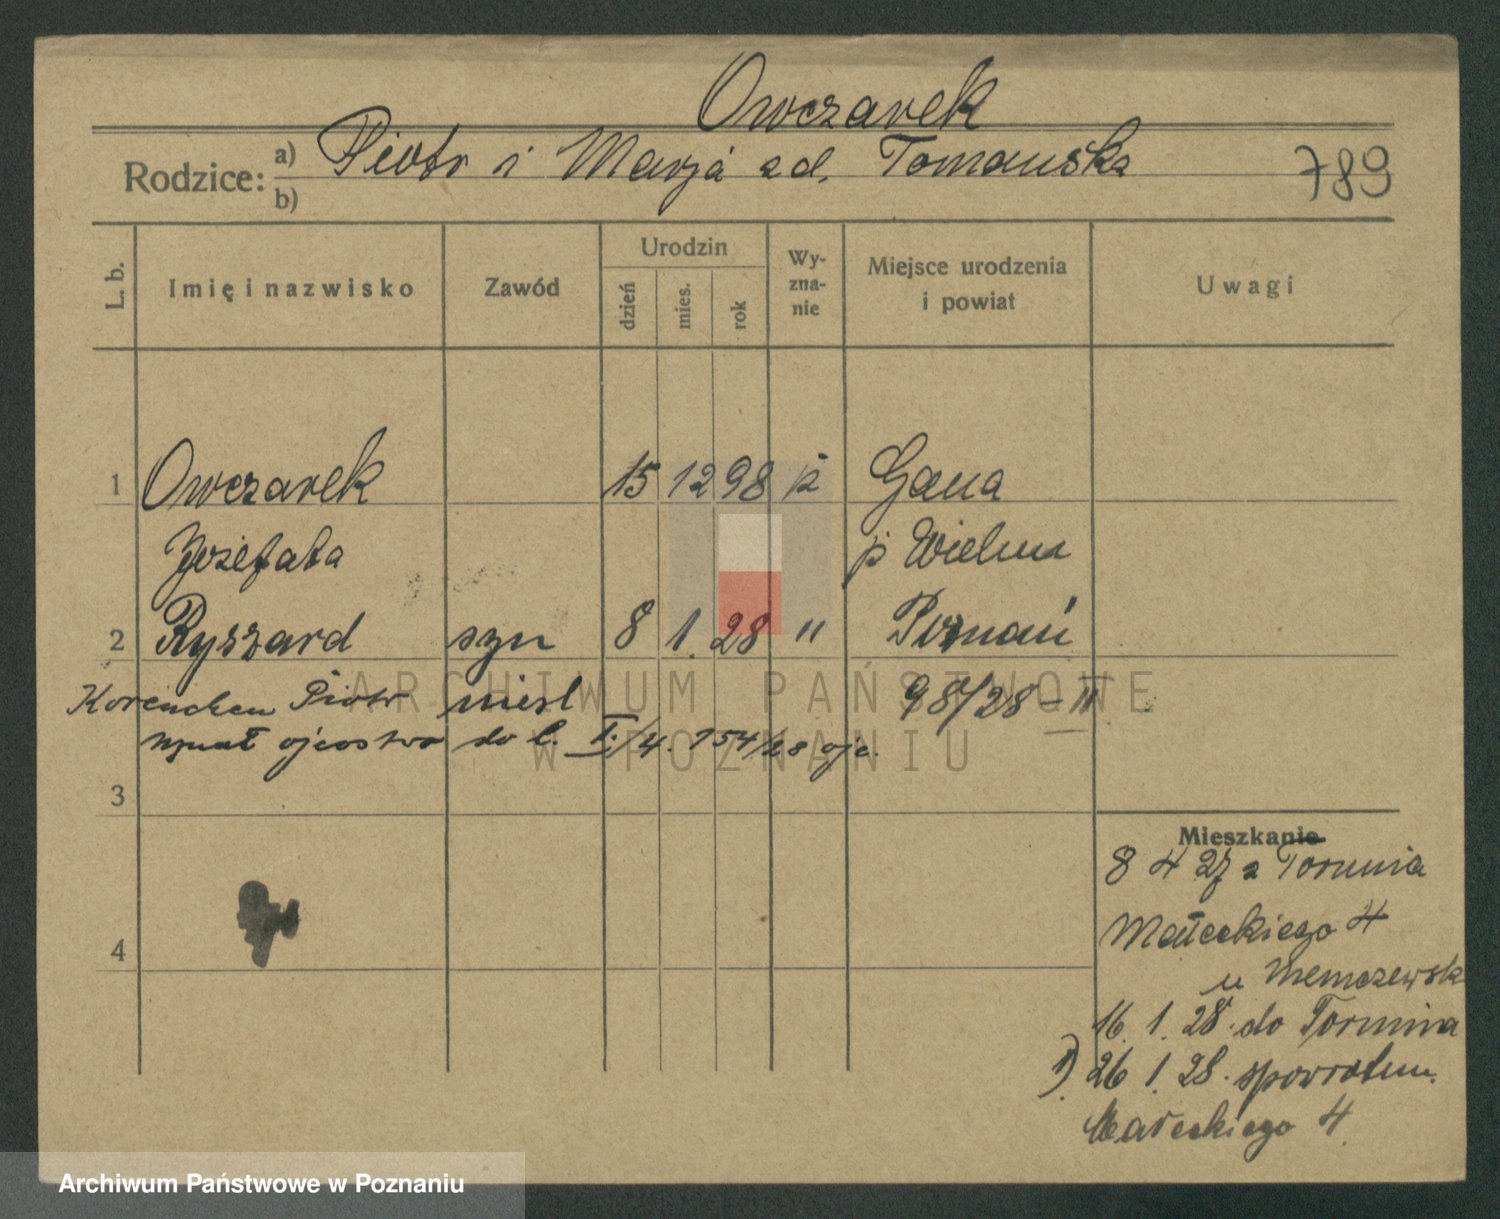 Owczarek
Rodzice: a) Piotr i Marja zd. Tomauska
b)
789
L. b.
Imię i nazwisko
Zawód
Urodzin
dzień
mies.
rok
Wy-
zna-
nie
Miejsce urodzenia
i powiat
Uwagi
1 Owczarek 15 12 98 k Gana
Józefata p Wielun
2 Ryszard syn 8 1. 28 " Poznań
Piotr niesl 98/28-II
uznał ojcostwo do l. I./4. 154/28 ojc.
3
4
Mieszkanie
8 4 27 z Torunia
Małeckiego 4
u
16. 1. 28. do Torunia
1) 26 1. 28. spowrotem.
Małeckiego 4.
ARCHIWUM PAŃSTWOWE
W POZNANIU
Archiwum Państwowe w Poznaniu